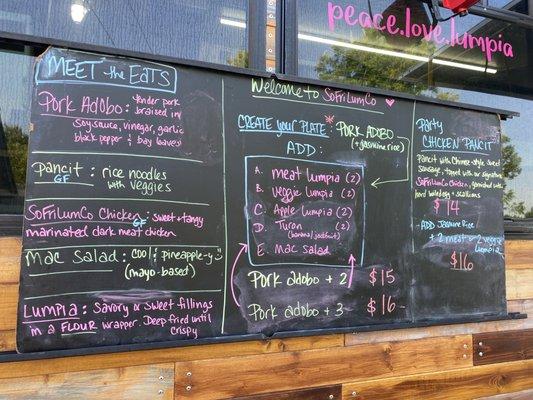 peace.love.lumpia
MEET the EATS
Pork Adobo: tender pork
braised in
soy sauce, vinegar, garlic
black pepper
+ bay leaves
Pancit: rice noodles
GF with veggies
SoFriLumCo Chicken: sweet + tangy
GF
marinated dark meat chicken
Mac Salad: cool + pineapple-y
(mayo-based)
Lumpia: Savory & sweet fillings
in a FLOUR wrapper. Deep fried until
crispy
Welcome to SoFriLumCo
CREATE your PLATE: PORK ADOBO
(+ jasmine rice)
ADD:
A. meat lumpia (2)
B. Veggie lumpia (2)
C. Apple lumpia (2)
D. Turon (2)
(banana/jackfruit)
E. Mac salad
Pork adobo + 2 $15
Pork adobo + 3 $16
Party
CHICKEN PANCIT
Pancit with Chinese-style, sweet
sausage, topped with our signature
SoFriLumCo Chicken, garnished with
hard boiled egg + scallions
$14
- ADD Jasmine Rice
+ 2 meat or 2 veggie
lumpia
$16